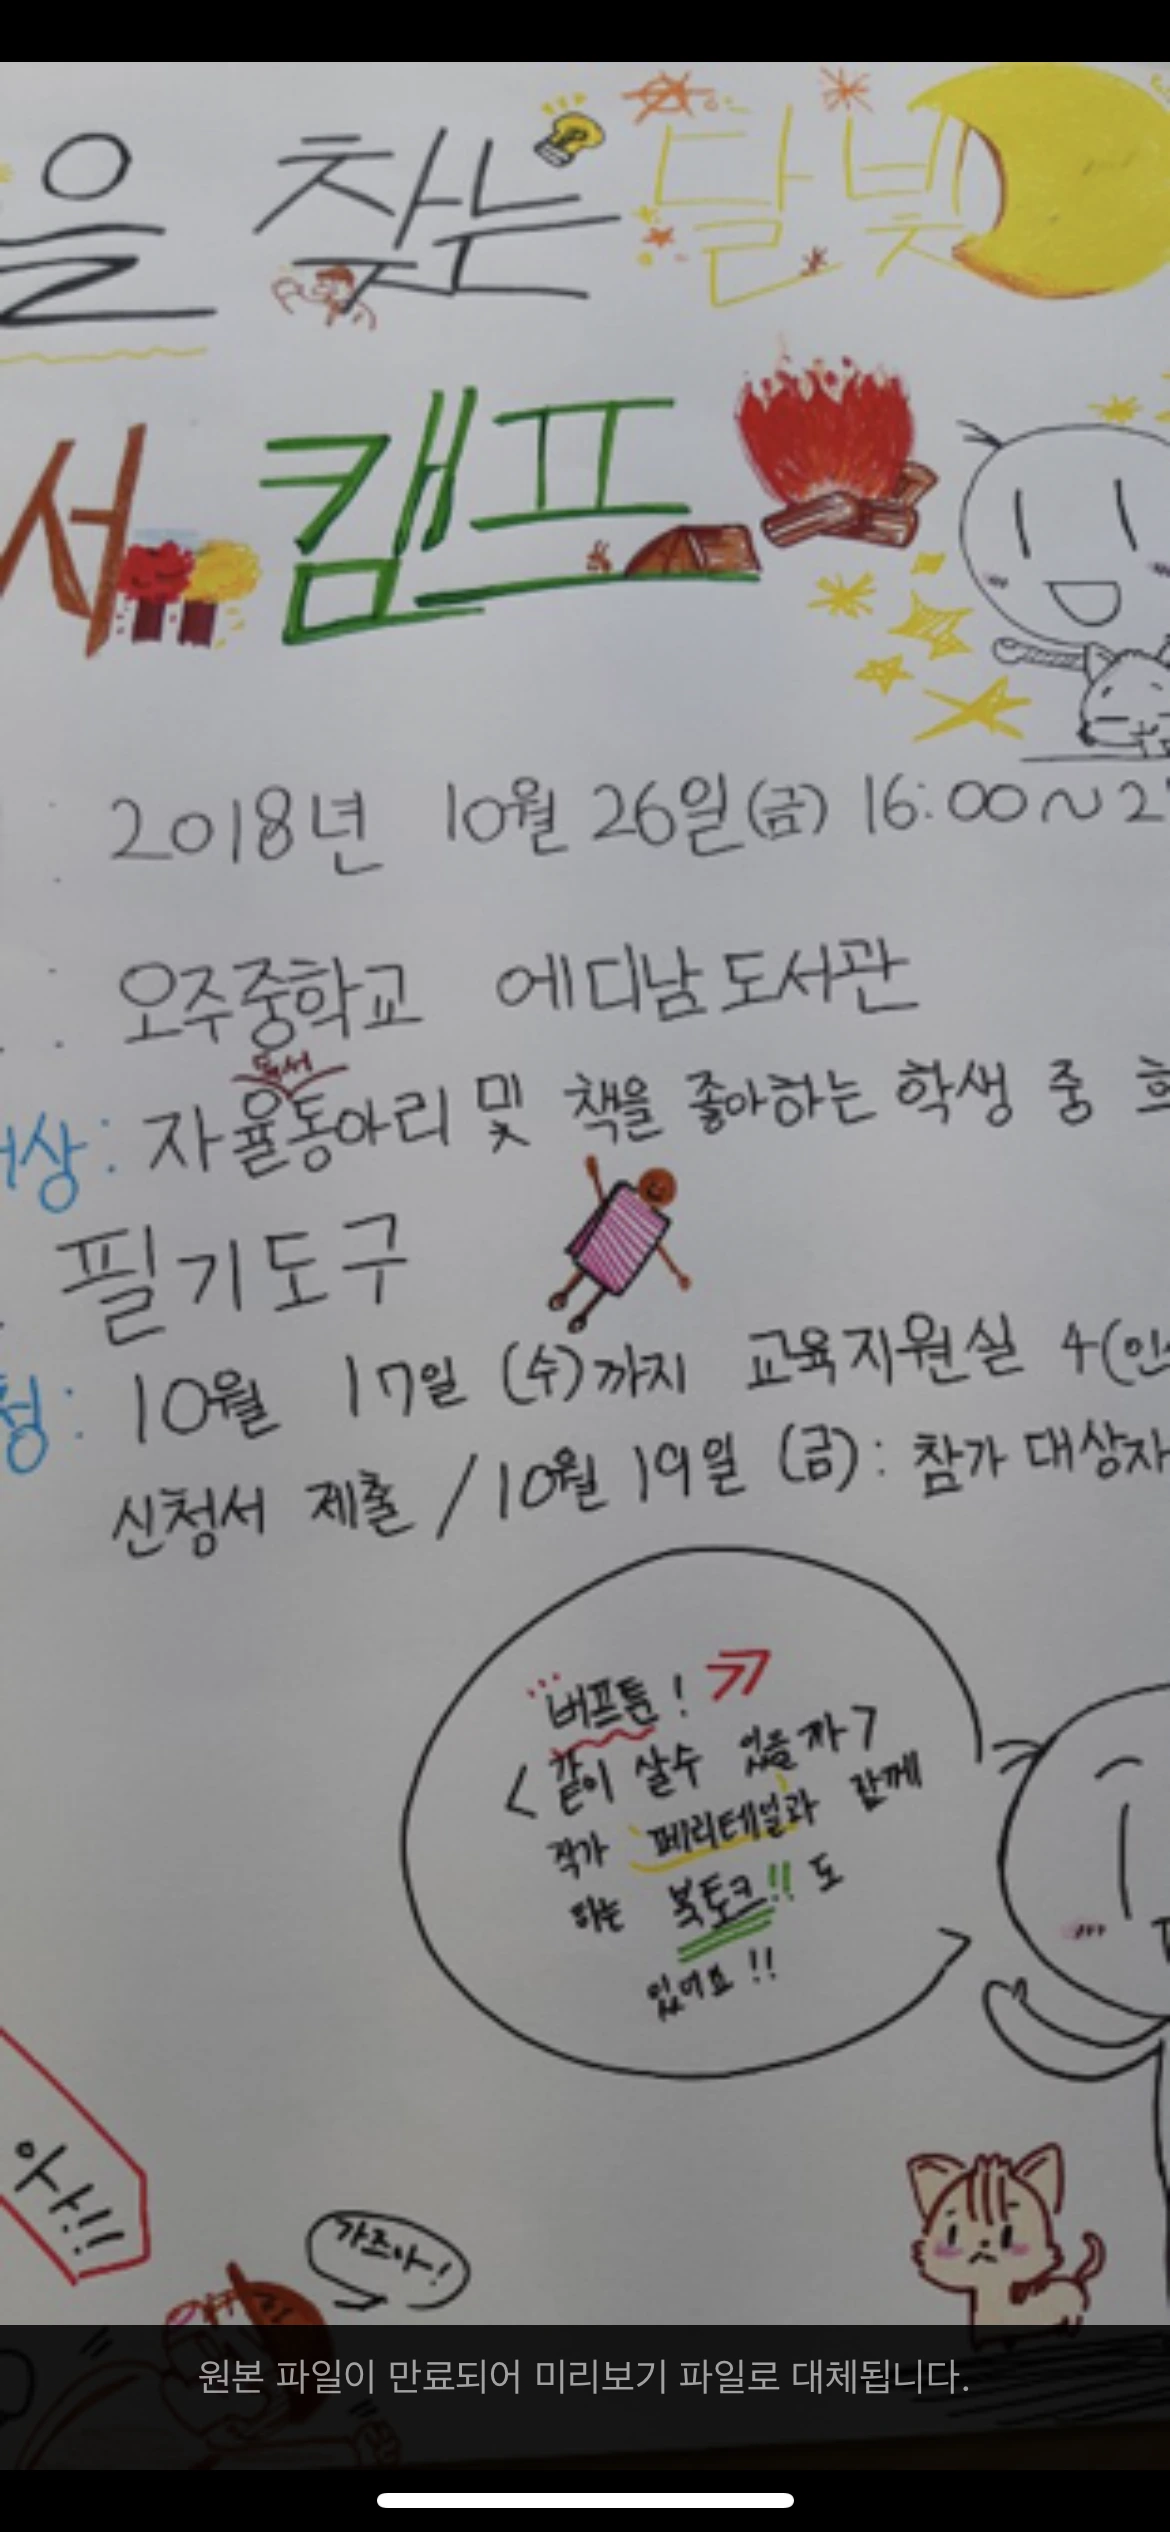 을 찾는 달빛
서 캠프
: 2018년 10월 26일(금) 16:00~2
: 오주중학교 에디남도서관
독서
상: 자율동아리 및 책을 좋아하는 학생 중 희
필기도구
청: 10월 17일 (수)까지 교육지원실 4(인
신청서 제출 / 10월 19일 (금): 참가 대상자
버프툰!
<같이 살수 있을까>
작가 페리테일과 함께
하는 북토크!! 도
있어요!!
아!!
가즈아!
원본 파일이 만료되어 미리보기 파일로 대체됩니다.